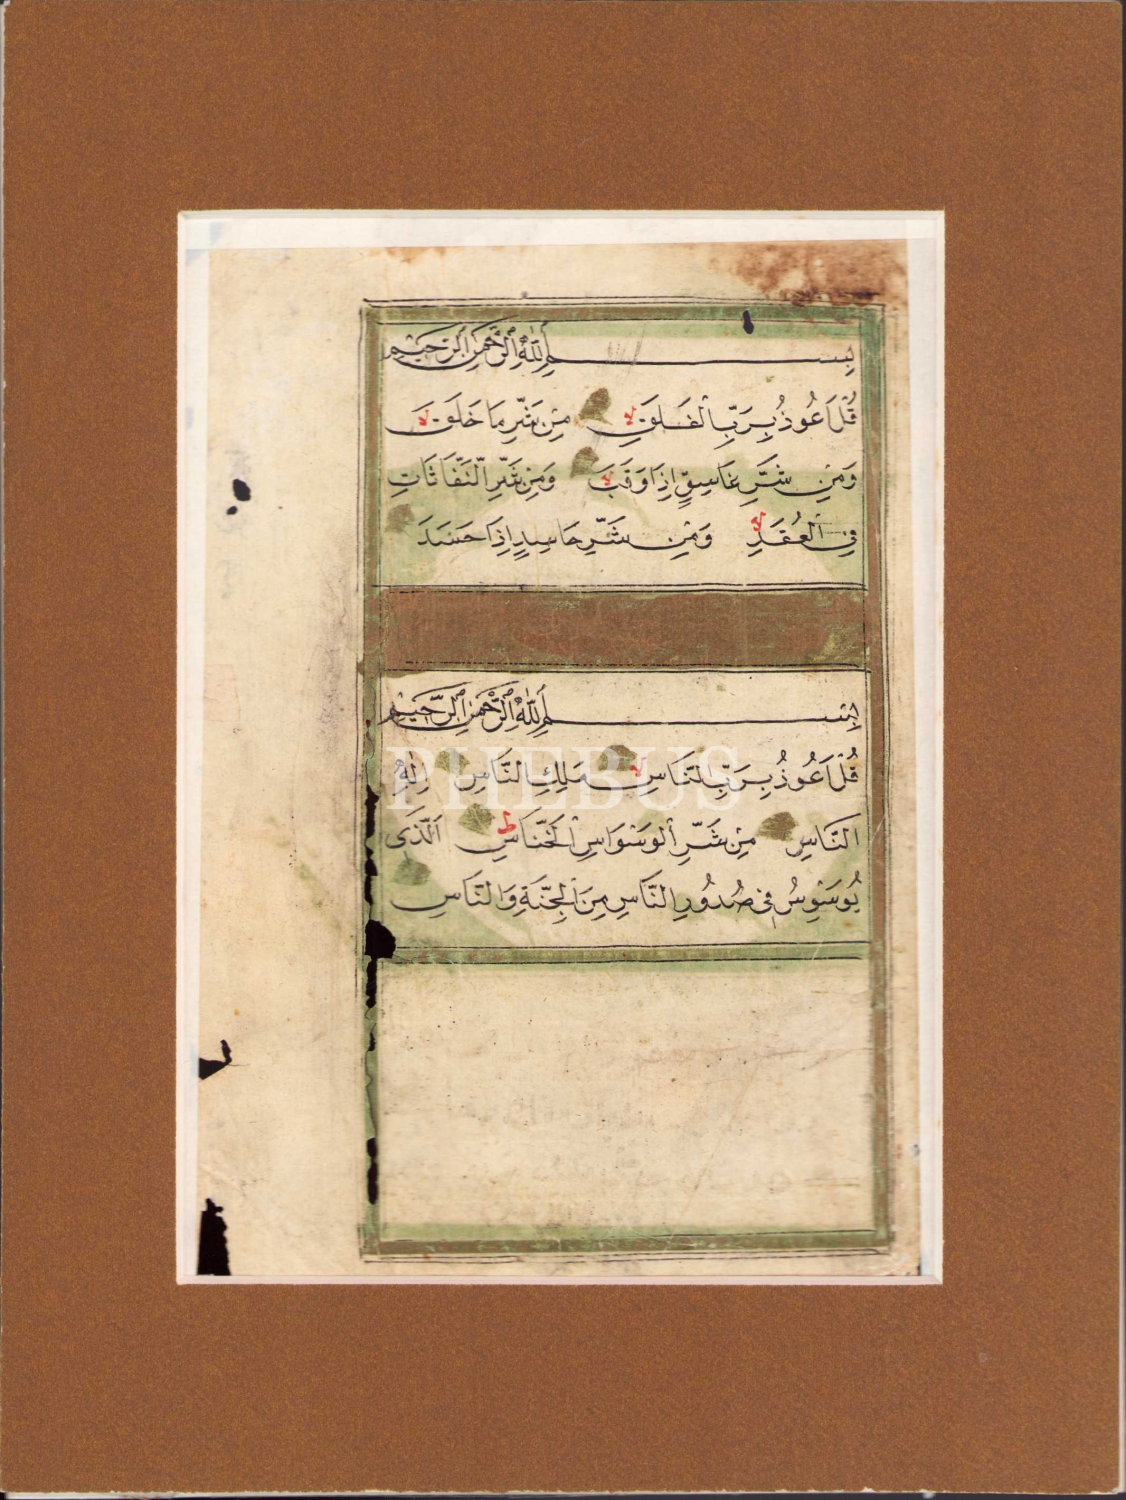 بِسْمِ اللّٰهِ الرَّحْمٰنِ الرَّحِيْمِ
قُلْ اَعُوْذُ بِرَبِّ الْفَلَقِ لا مِنْ شَرِّ مَا خَلَقَ لا
وَمِنْ شَرِّ غَاسِقٍ اِذَا وَقَبَ لا وَمِنْ شَرِّ النَّفّٰاثَاتِ
فِي الْعُقَدِ لا وَمِنْ شَرِّ حَاسِدٍ اِذَا حَسَدَ
بِسْمِ اللّٰهِ الرَّحْمٰنِ الرَّحِيْمِ
قُلْ اَعُوْذُ بِرَبِّ النَّاسِ لا مَلِكِ النَّاسِ اِلٰهِ
النَّاسِ مِنْ شَرِّ الْوَسْوَاسِ الْخَنَّاسِ ط اَلَّذِى
يُوَسْوِسُ فِى صُدُوْرِ النَّاسِ مِنَ الْجِنَّةِ وَالنَّاسِ
PHEBUS